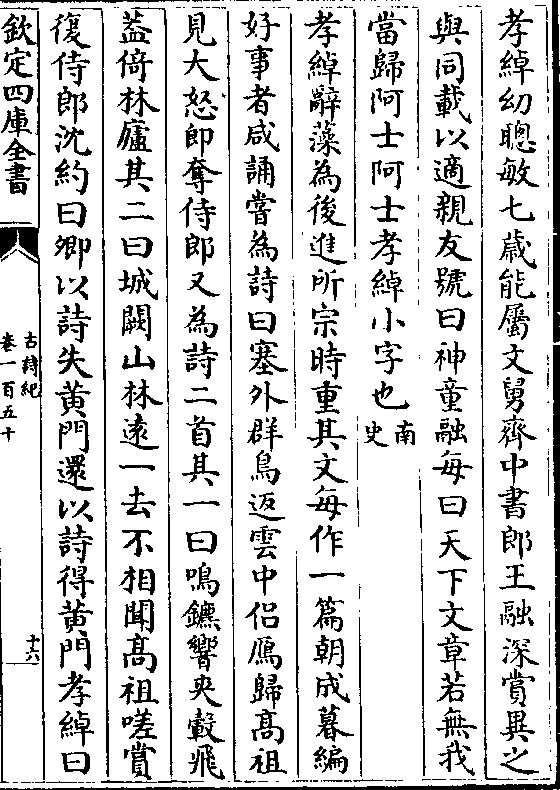 孝綽幼聰敏七歳能屬文舅齊中書郎王融深賞異之
與同載以適親友號曰神童融每曰天下文章若無我
當歸阿士阿士孝綽小字也南史
孝綽辭藻為後進所宗時重其文每作一篇朝成暮編
好事者咸誦嘗為詩曰塞外群鳥返雲中侣鴈歸髙祖
見大怒即奪侍郎又為詩二首其一曰鳴鑣響夾轂飛
葢倚林廬其二曰城闕山林逺一去不相聞髙祖嗟賞
復侍郎沈約曰卿以詩失黄門還以詩得黄門孝綽曰
欽定四庫全書
古詩紀
卷一百五十
十六